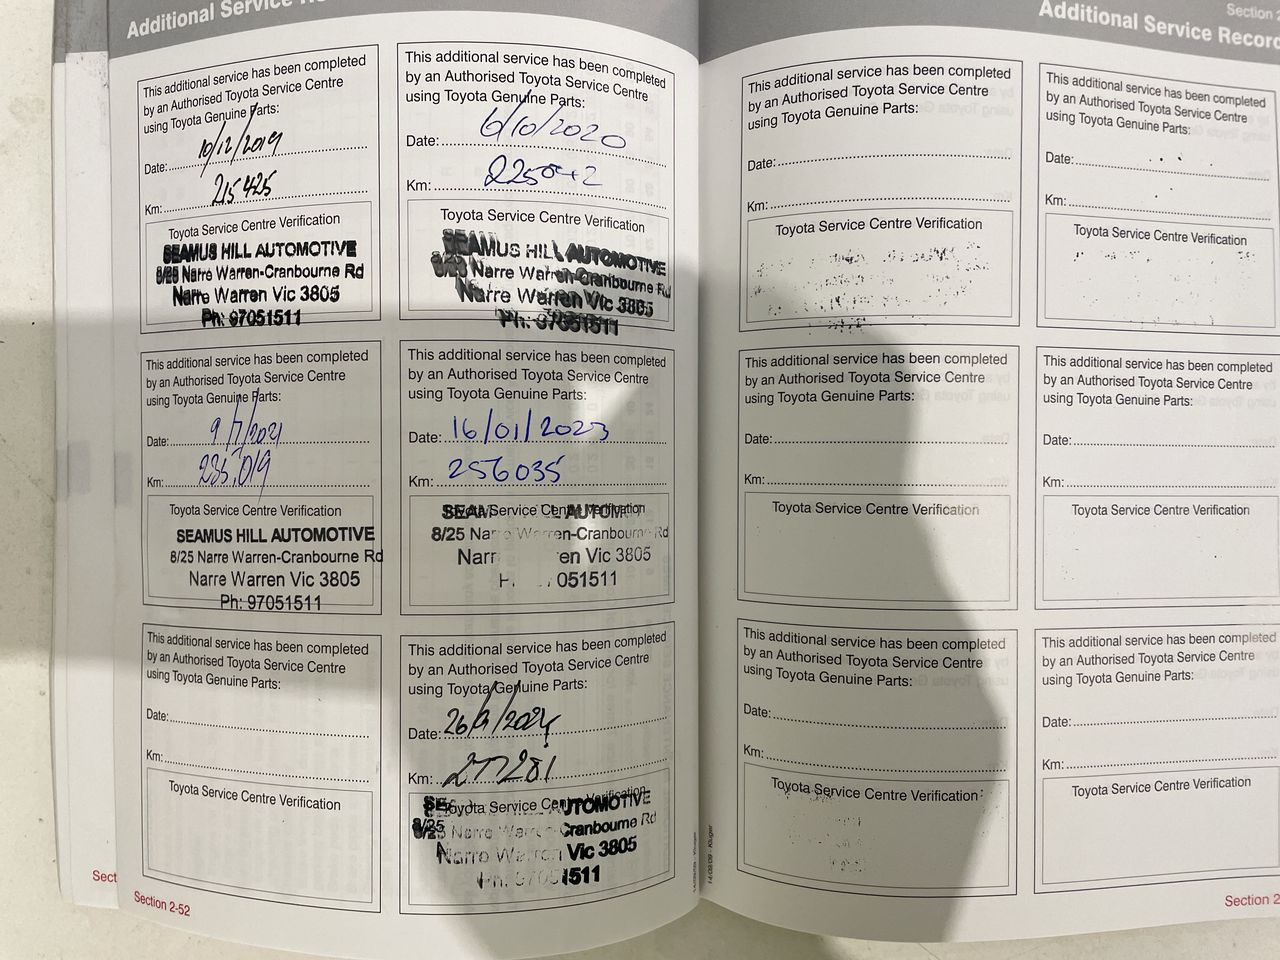 Additional Service
This additional service has been completed
by an Authorised Toyota Service Centre
using Toyota Genuine Parts:
Date: 10/12/2019
Km: 215425
Toyota Service Centre Verification
SEAMUS HILL AUTOMOTIVE
8/25 Narre Warren-Cranbourne Rd
Narre Warren Vic 3805
Ph: 97051511
This additional service has been completed
by an Authorised Toyota Service Centre
using Toyota Genuine Parts:
Date: 6/10/2020
Km:
Toyota Service Centre Verification
SEAMUS HILL AUTOMOTIVE
8/25 Narre Warren-Cranbourne Rd
Narre Warren Vic 3805
Ph: 97051511
This additional service has been completed
by an Authorised Toyota Service Centre
using Toyota Genuine Parts:
Date: 9/7/2021
Km: 235,019
Toyota Service Centre Verification
SEAMUS HILL AUTOMOTIVE
8/25 Narre Warren-Cranbourne Rd
Narre Warren Vic 3805
Ph: 97051511
This additional service has been completed
by an Authorised Toyota Service Centre
using Toyota Genuine Parts:
Date: 16/01/2023
Km: 256035
Toyota Service Centre Verification
8/25 Warren-Cranbourne Rd
Vic 3805
This additional service has been completed
by an Authorised Toyota Service Centre
using Toyota Genuine Parts:
Date:
Km:
Toyota Service Centre Verification
This additional service has been completed
by an Authorised Toyota Service Centre
using Toyota Genuine Parts:
Date: 26/9/2024
Km: 277281
Toyota Service Centre Verification
AUTOMOTIVE
8/25 Narre Warren-Cranbourne Rd
Narre Warren Vic 3805
Section 2-52
Section
Additional Service Record
This additional service has been completed
by an Authorised Toyota Service Centre
using Toyota Genuine Parts:
Date:
Km:
Toyota Service Centre Verification
This additional service has been completed
by an Authorised Toyota Service Centre
using Toyota Genuine Parts:
Date:
Km:
Toyota Service Centre Verification
This additional service has been completed
by an Authorised Toyota Service Centre
using Toyota Genuine Parts:
Date:
Km:
Toyota Service Centre Verification
This additional service has been completed
by an Authorised Toyota Service Centre
using Toyota Genuine Parts:
Date:
Km:
Toyota Service Centre Verification
This additional service has been completed
by an Authorised Toyota Service Centre
using Toyota Genuine Parts:
Date:
Km:
Toyota Service Centre Verification
This additional service has been completed
by an Authorised Toyota Service Centre
using Toyota Genuine Parts:
Date:
Km:
Toyota Service Centre Verification
14/09/09 - Kluger
Section 2